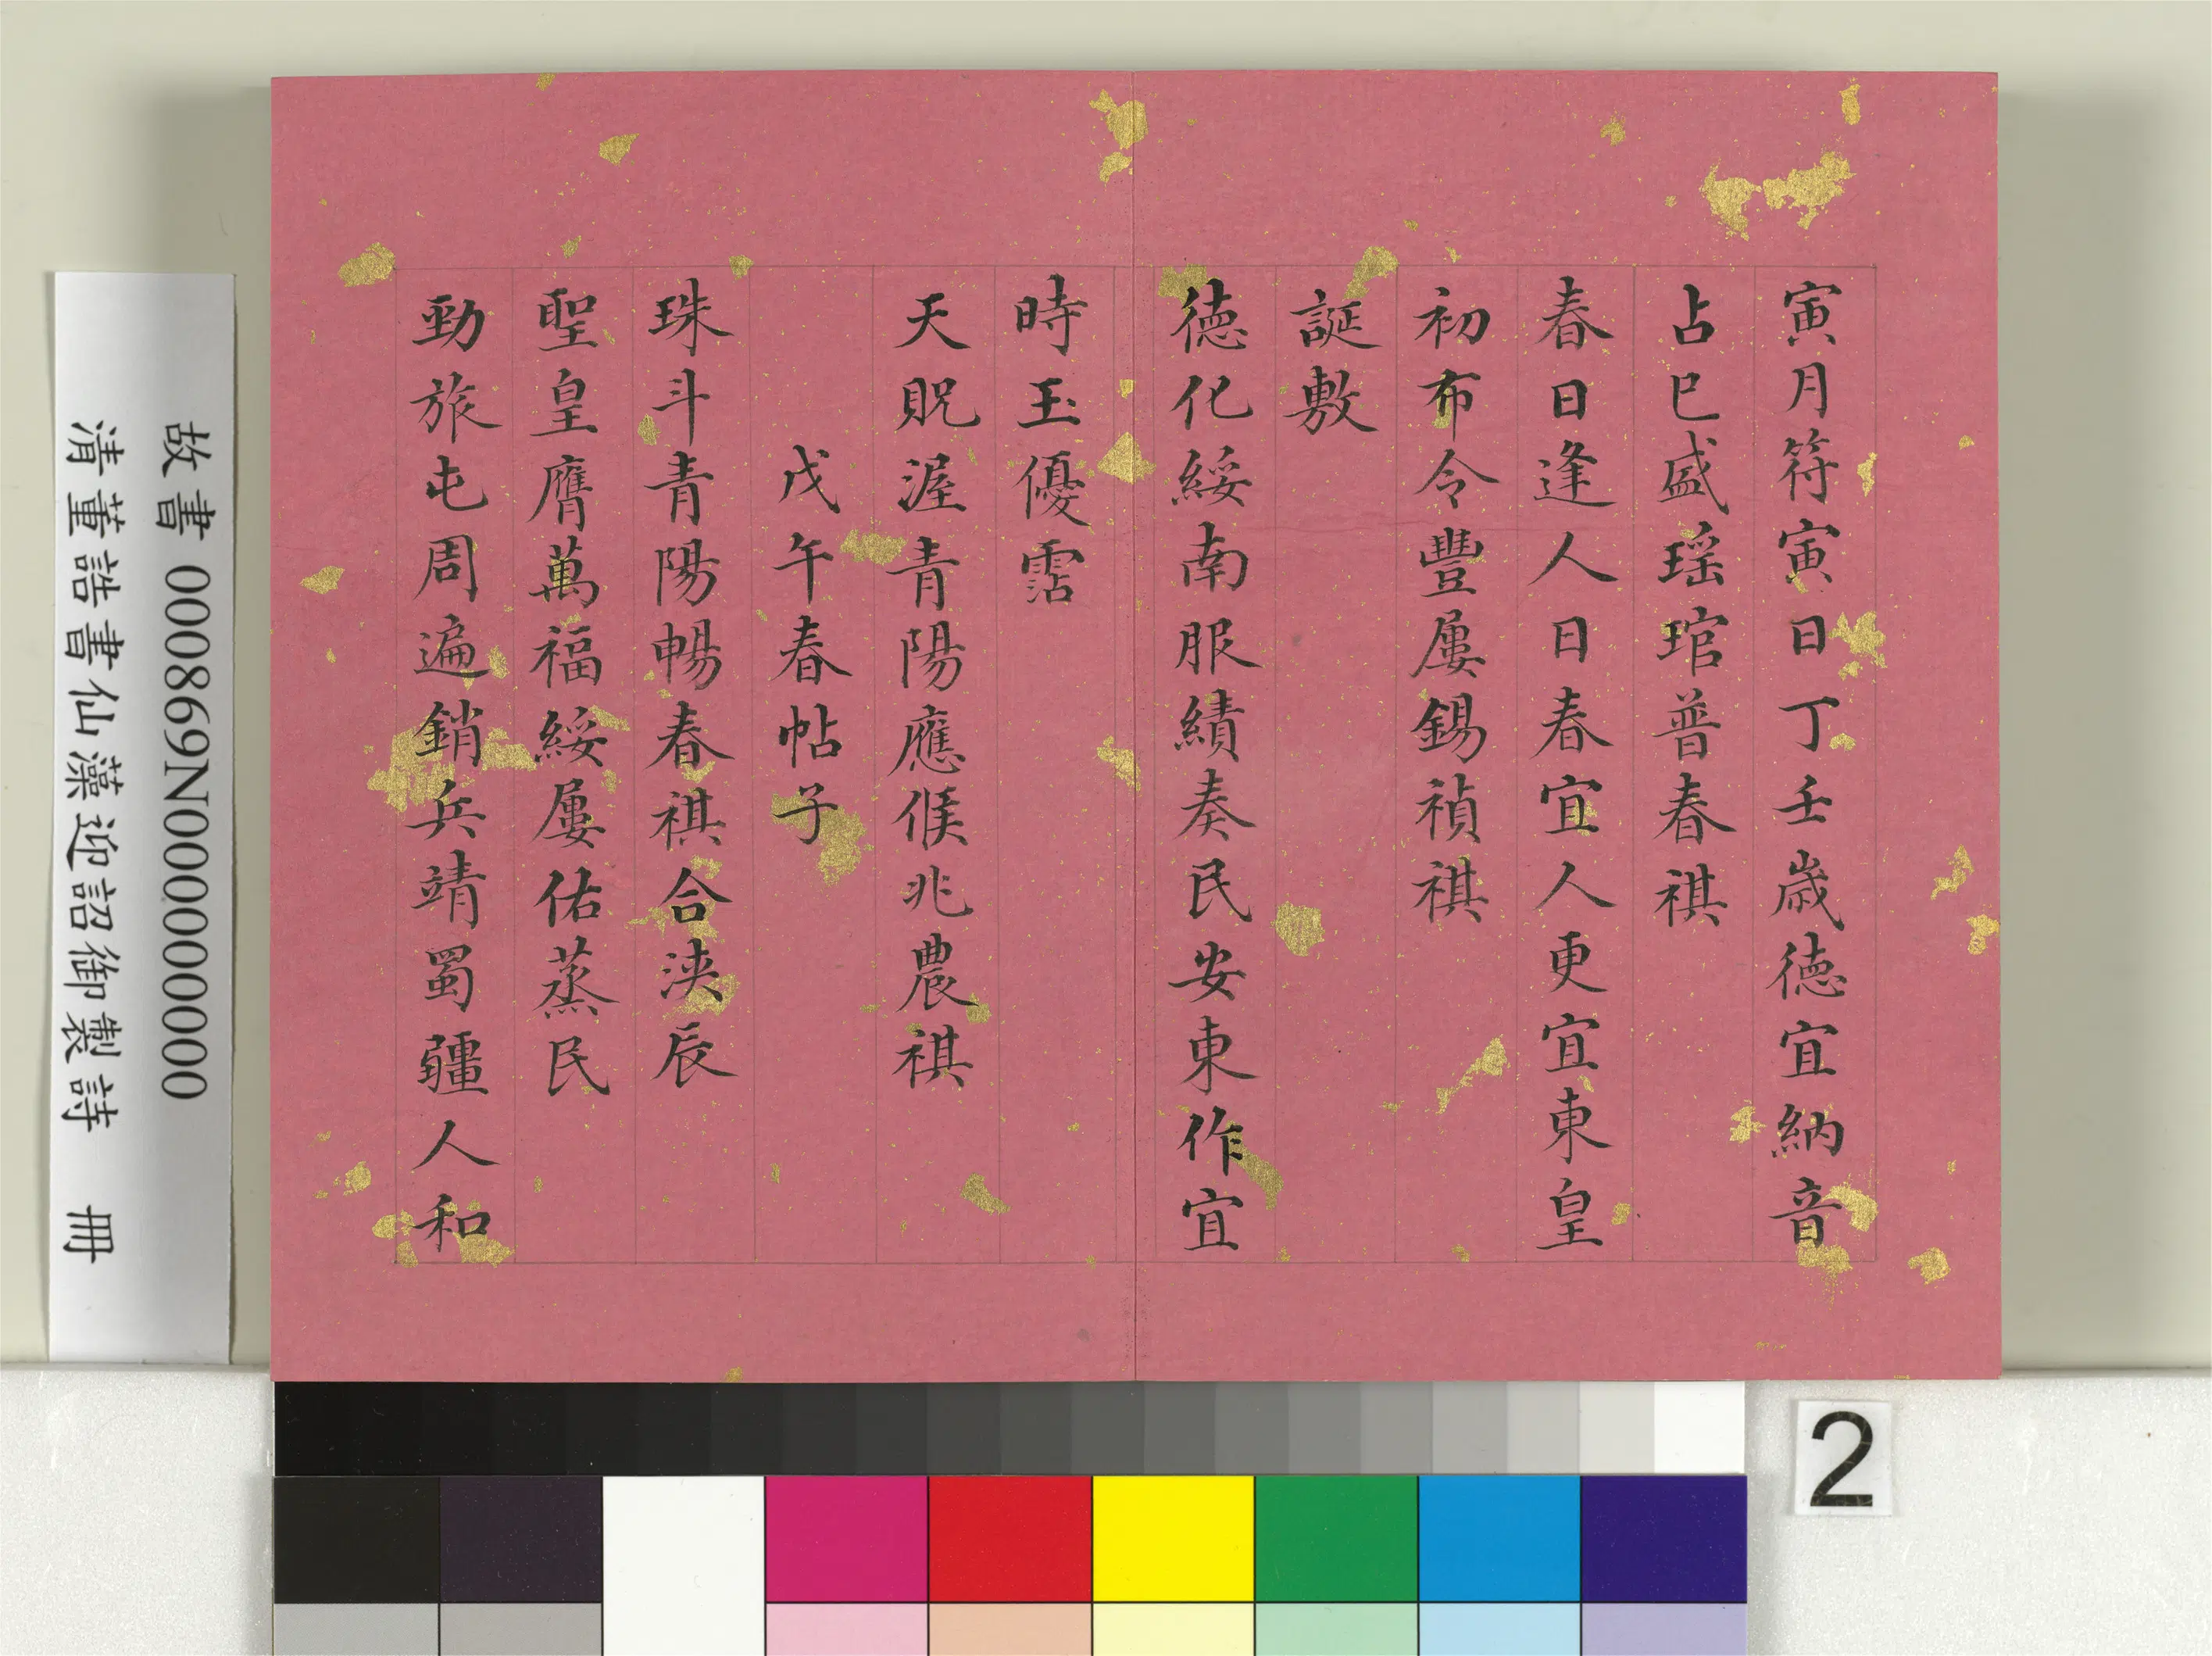 寅月符寅日丁壬歲德宜納音
占巳盛瑶琯普春祺
春日逢人日春宜人更宜東皇
初布令豐屢錫禎祺
誕敷
德化綏南服績奏民安東作宜
時玉優霑
天貺渥青陽應候兆農祺
戊午春帖子
珠斗青陽暢春祺合浹辰
聖皇膺萬福綏屢佑蒸民
勁旅屯周遍銷兵靖蜀疆人和
故書 000869N000000000
清董誥書仙藻迎詔御製詩 冊
2